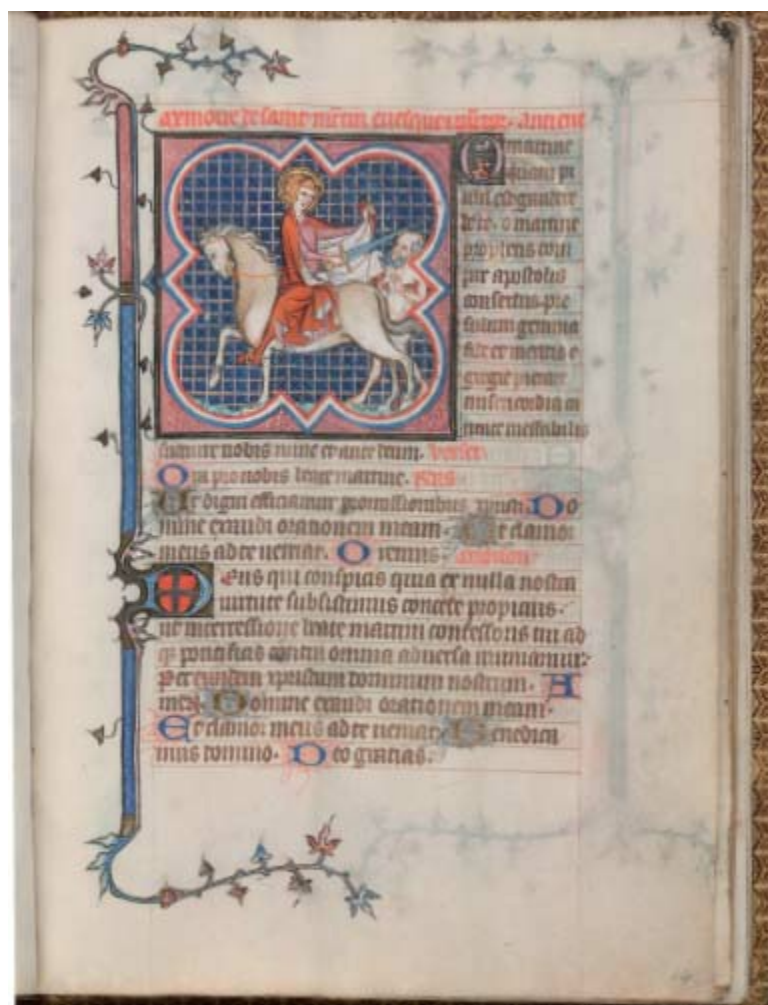 memoire de saint martin euesque antienne
O martine
quam pi
um est gaudere
de te. o martine
prophetis com
par apostolis
consertus. pre
sulum gemma
fide et meritis e
gregie pietate
misericordia
ineffabilis
nobis nunc et ante deum. verset
Ora pro nobis beate martine. 
Ut digni efficiamur promissionibus xpristi. Do
mine exaudi orationem meam. Et clamor
meus ad te ueniat. Oremus
Deus qui conspicis quia ex nulla nostra
uirtute subsistimus concede propicius.
ut intercessione beati martini confessoris tui ad
pontificis contra omnia aduersa muniamur.
Per eundem xpristum dominum nostrum. A
men. Domine exaudi orationem meam.
Et clamor meus ad te ueniat. Benedica
mus domino. Deo gracias.